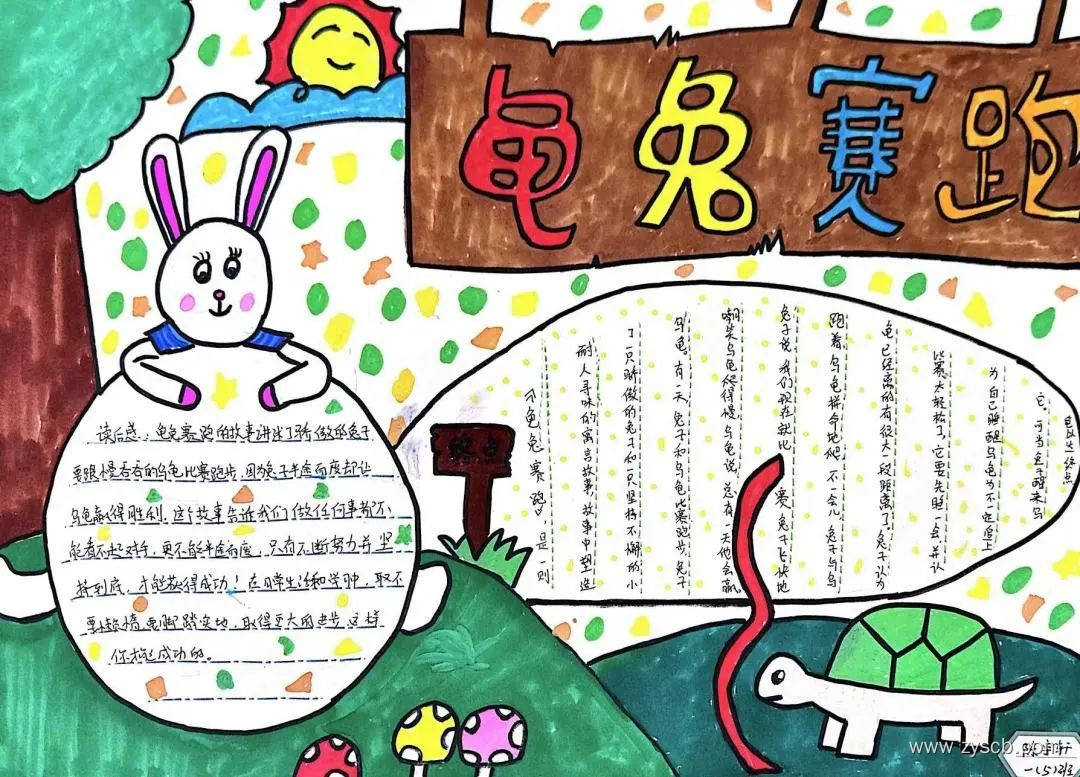 龟兔赛跑
读后感：龟兔赛跑的故事讲述了骄傲的兔子
要跟慢吞吞的乌龟比赛跑步，因为兔子半途而废却让
乌龟赢得胜利。这个故事告诉我们做任何事都不
能看不起对手，更不能半途而废，只有不断努力并坚
持到底，才能获得成功！在日常生活和学习中，取不
要脚踏实地，取得更大的进步，这样
你才能成功的。
终点
《龟兔赛跑》是一则
耐人寻味的寓言故事，故事中塑造
了一只骄傲的兔子和一只坚持不懈的小
乌龟。有一天，兔子和乌龟比赛跑步，兔子
嘲笑乌龟爬得慢，乌龟说，总有一天他会赢
兔子说，我们现在就比赛，兔子飞快地
跑着，乌龟拼命地爬，不一会儿，兔子与乌
龟已经离的有很大一段距离了，兔子认为
比赛太轻松了，它要先睡一会，并认
为自己睡醒乌龟为不一定追上
它。可当兔子醒来乌
终点
陈
一(5)班
www.zyscb.com